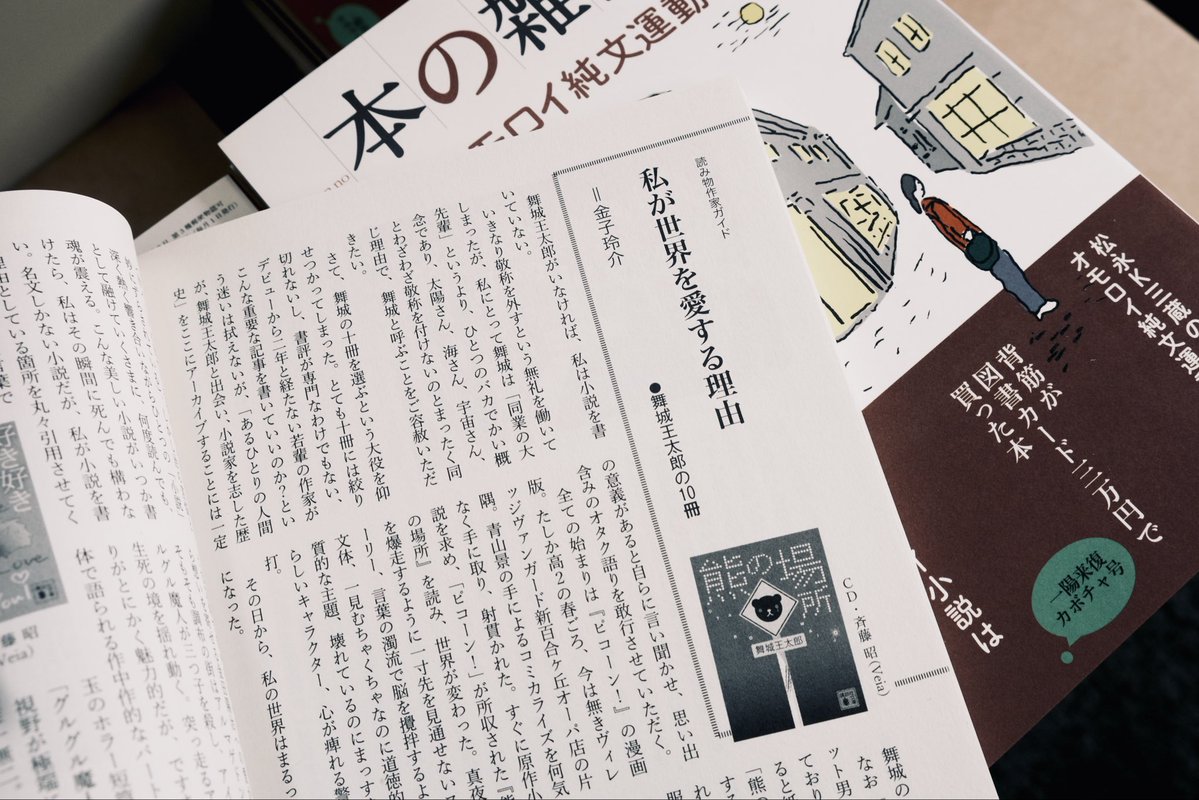 本の雑
オモロイ純文運動
松永K三蔵の
オモロイ純文運
背筋が
図書カード三万円で
買った本
小説は
一陽来復
カボチャ号
読み物作家ガイド
私が世界を愛する理由
=金子玲介
●舞城王太郎の10冊
舞城王太郎がいなければ、私は小説を書
いていない。
いきなり敬称を外すという無礼を働いて
しまったが、私にとって舞城は「同業の大
先輩」というより、ひとつのバカでかい概
念であり、太陽さん、海さん、宇宙さん、
とわざわざ敬称を付けないのとまったく同
じ理由で、舞城と呼ぶことをご容赦いただ
きたい。
さて、舞城の十冊を選ぶという大役を仰
せつかってしまった。とても十冊には絞り
切れないし、書評が専門なわけでもない、
デビューから二年と経たない若輩の作家が
こんな重要な記事を書いていいのか?とい
う迷いは拭えないが、「あるひとりの人間
が、舞城王太郎と出会い、小説家を志した歴
史」をここにアーカイブすることには一定
の意義があると自らに言い聞かせ、思い出
含みのオタク語りを敢行させていただく。
全ての始まりは『ピコーン!』の漫画
版。たしか高2の春ごろ、今は無きヴィレ
ッジヴァンガード新百合ヶ丘オーパ店の片
隅。青山景の手によるコミカライズを何気
なく手に取り、射貫かれた。すぐに原作小
説を求め、「ピコーン!」が所収された『熊
の場所』を読み、世界が変わった。真夜
を爆走するように一寸先を見通せないス
ーリー、言葉の濁流で脳を攪拌するよ
文体、一見むちゃくちゃなのに道徳的
質的な主題、壊れているのにまっす
らしいキャラクター、心が痺れる警
打。
その日から、私の世界はまるっ
になった。
熊の場所
舞城王太郎
CD・斉藤 昭(Veia)
舞城の
なお
ット男
ており
ると紙
「熊の
する
服
深く熱
として融けていくさまに、何度読んでも
魂が震える。こんな美しい小説がいつか書
けたら、私はその瞬間に死んでも構わな
い。名文しかない小説だが、私が小説を書
理由としている箇所を丸々引用させてく
好き好き
Love
You!
藤 昭
(Veia)
ルグル魔
生死の境を揺れ動く。
りがとにかく魅力的だが、
体で語られる作中作的なパート
玉のホラー短
「グルグル魔
視野が極端